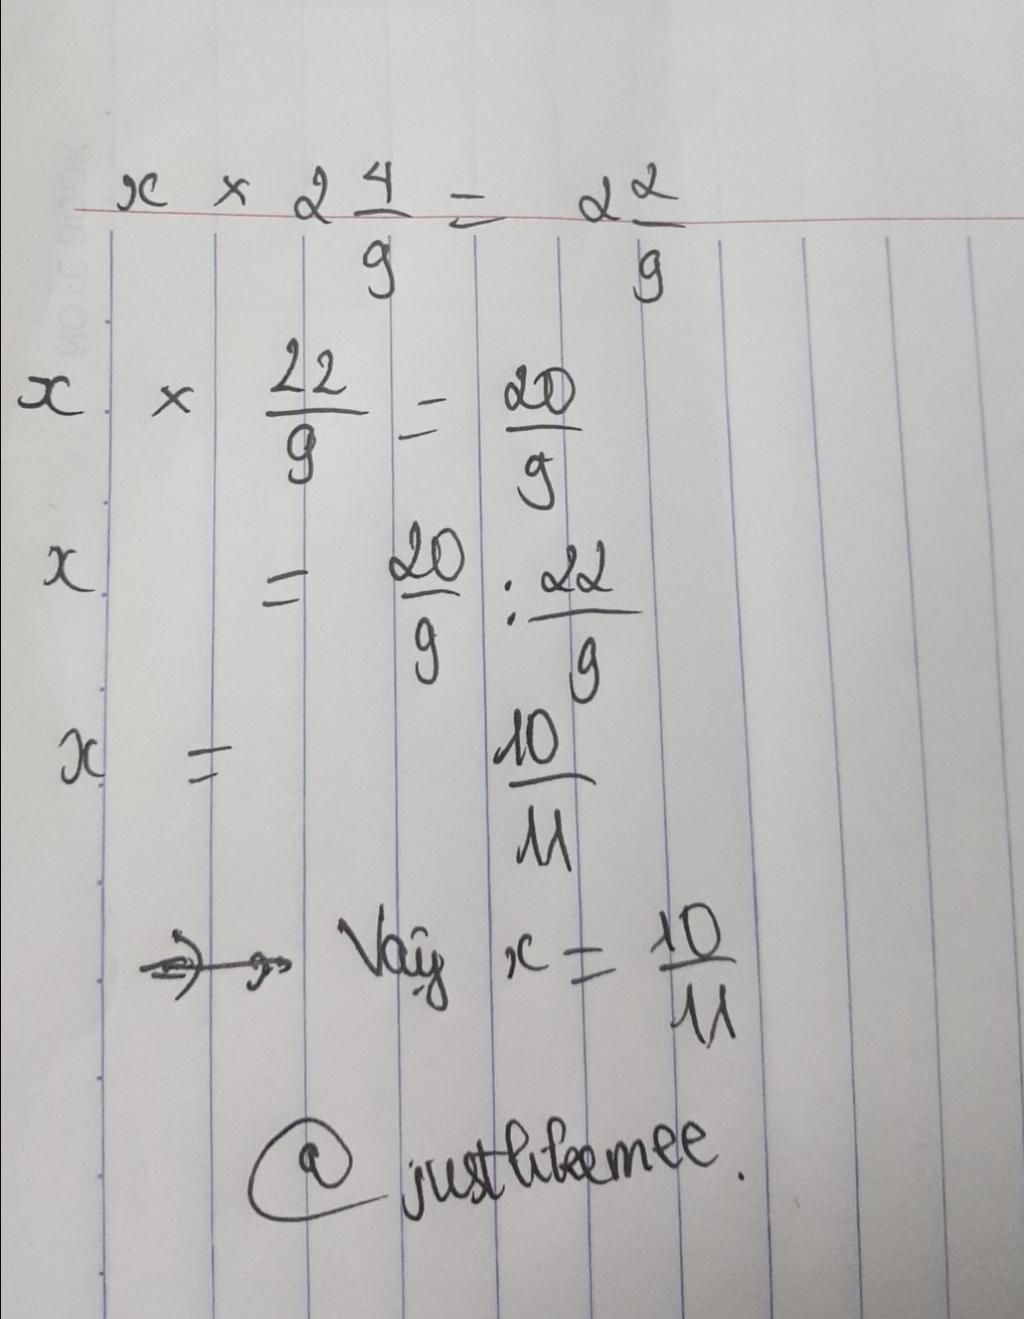 x × 2 4/9 = 2 2/9
x × 22/9 = 20/9
x = 20/9 : 22/9
x = 10/11
Vậy x = 10/11
@justlikeemee.